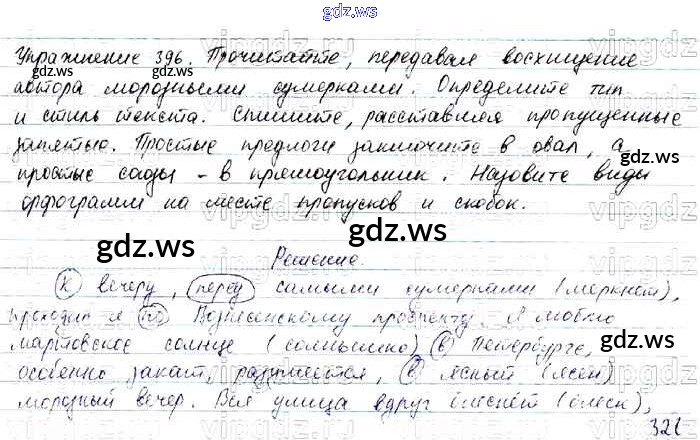 gdz.ws
Упражнение 396. Прочитайте, передавая восхищение
автора морозными сумерками. Определите тип
и стиль текста. Спишите, расставляя пропущенные
запятые. Простые предлоги заключите в овал, а
простые союзы - в прямоугольник. Назовите виды
орфограмм на месте пропусков и скобок.
gdz.ws gdz.ws
Решение.
К вечеру, перед самыми сумерками (меркнет),
проходил я по Вознесенскому проспекту. Я люблю
мартовское солнце (солнышко) в Петербурге,
особенно закат, разумеется, в ясный (ясен)
морозный вечер. Вся улица вдруг блеснёт (блеск),
gdz.ws gdz.ws
321